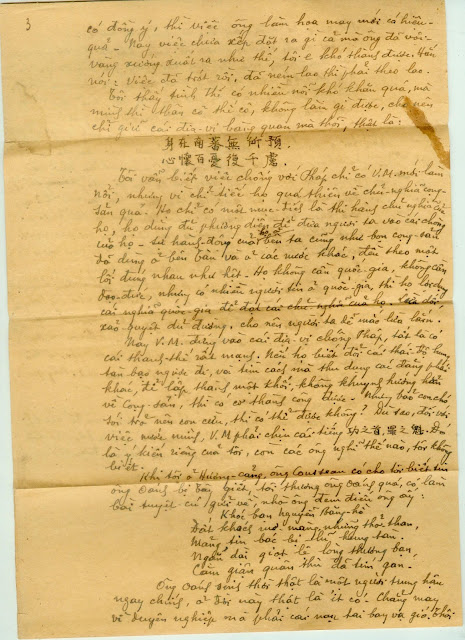 3
có đồng ý, thì việc ông làm hoa may mới có hiệu-
quả - Nay việc chưa xếp đặt ra gì cả mà ông đã vội-
vàng xướng xuất ra như thế, tôi e khó thành được. Hắn
nói: Việc đã tất rồi, đã nem lao thì phải theo lao.
Tôi thấy tình thế có nhiều nỗi khó khăn quá, mà
mình thì thân cô thế cô, không làm gì được, cho nên
chỉ giữ cái địa-vị bàng quan mà thôi, thật là:
身在南蕃無所預,
心懷百憂復千慮.
Tôi vẫn biết việc chống với Pháp chỉ có V.M. mới làm
nổi, nhưng vì chỉ tiếc họ quá thiên về chủ-nghĩa cộng-
sản quá. Họ chỉ có một mục-đích là thi hành chủ nghĩa của
họ, họ dùng đủ phương diện để đưa người ta vào cái tròng
của họ - sự hành-động của bên ta cũng như bọn cộng-sản
đã dùng ở bên bán và ở các nước khác, đều theo một
lối giống nhau như hệt. Họ không cần quốc-gia, không cần
đạo-đức, nhưng có nhiều người tin ở quốc-gia, thì họ lợi dụng
cái nghĩa quốc-gia để đạt cái chủ nghĩa của họ. Lừa dối,
xảo-quyệt đủ đường. cho nên người ta bị mắc lừa lầm.
Nay V.M. đứng vào cái địa-vị chống Pháp, tất là có
cái thanh-thế rất mạnh. Nếu họ biết đổi cái thái độ hung
tàn bạo ngược đi, và tìm cách mà thu dụng các đảng phái
khác, để lập thành một khối, không khuynh hướng hẳn
về Cộng-sản, thì có cơ thành công được - Nhưng bảo con chó
sói trở nên con cừu, thì có thể được không? Dù sao, đối với
việc nước mình, V.M phải chịu cái tiếng 功之首罪之魁. Đó
là ý kiến riêng của tôi, còn các ông nghĩ thế nào, tôi không
biết.
Khi tôi ở Hương-cảng, ông Cousseau có cho tôi biết tin
ông Oanh bị bắn giết, tôi thương ông oanh quá, có làm
bài tuyệt cú gửi về, nhờ ông đem điếu ông ấy:
Khóc bạn Nguyễn Đông-hồ
Đất khách mơ màng những thở than,
Mảng tin bác bị lũ hung tàn.
Ngắn dài giọt lệ lòng thương bạn,
Căm giận quân thù dạ tím gan.
Ông Oanh sinh thời thật là một người trung hậu
ngay chính, ở đời này thật là ít có. Chẳng may
vì duyên nghiệp mà phải cái nạn tai bay vạ gió. Thôi